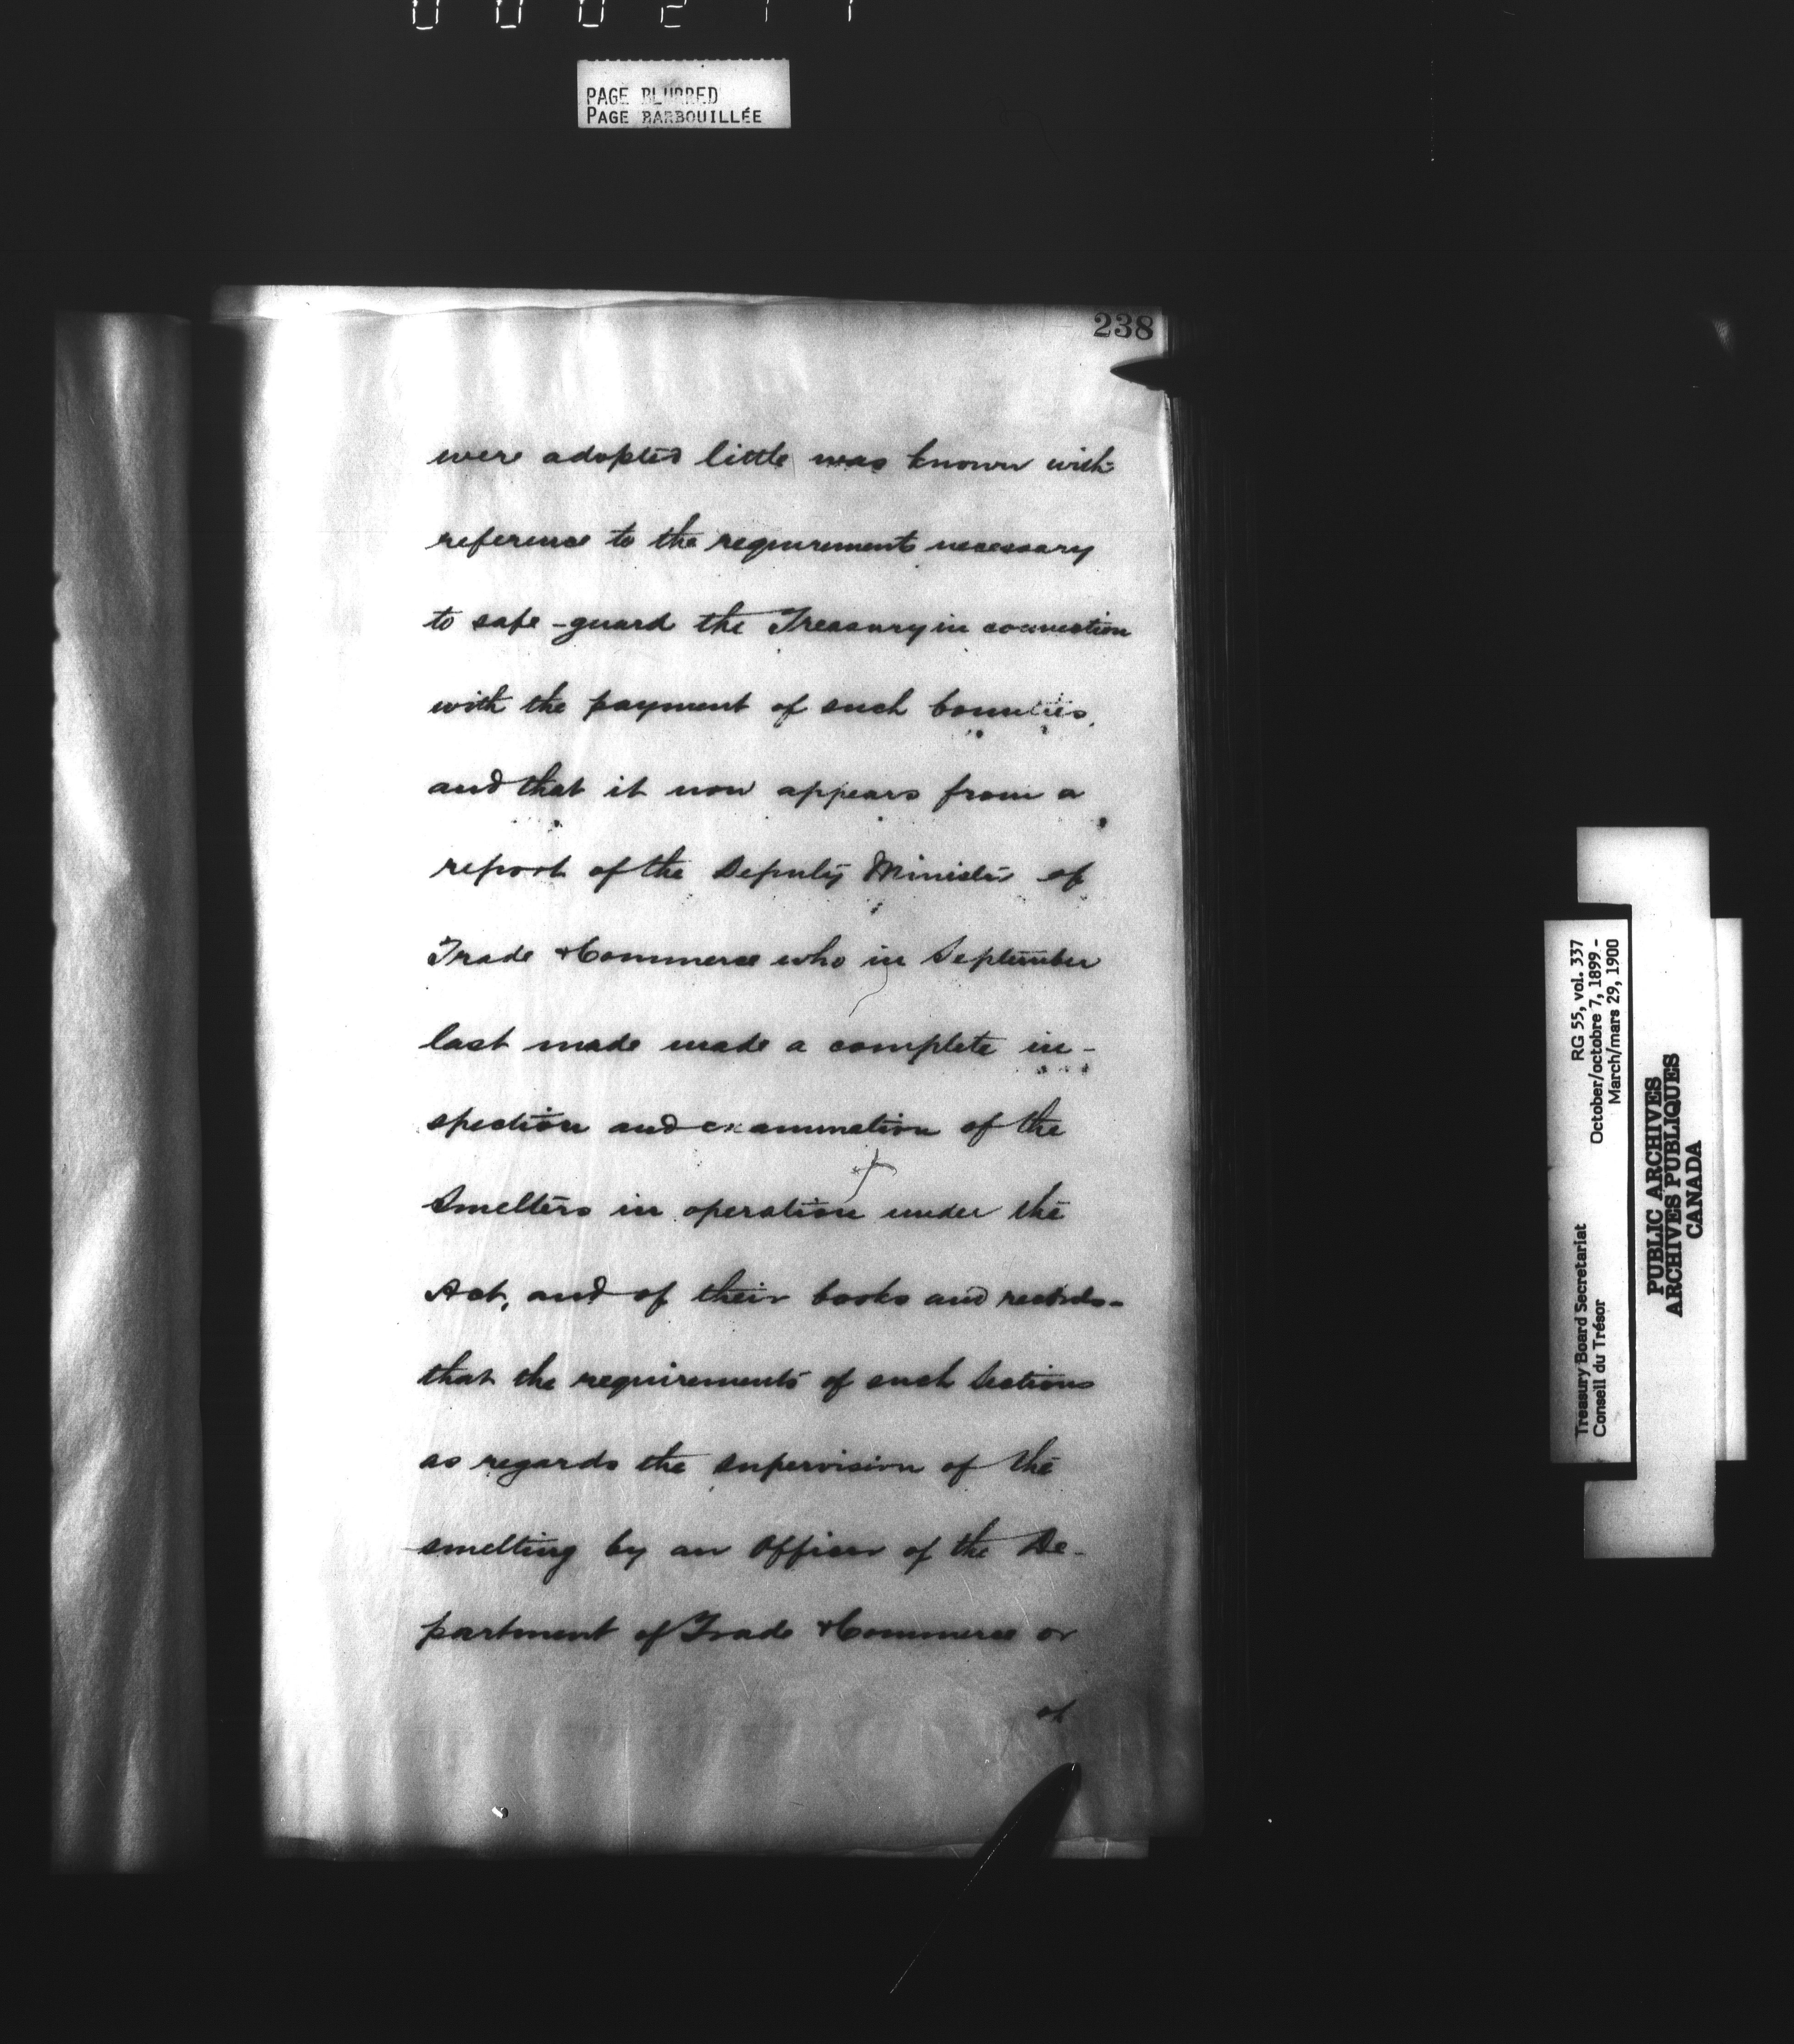 PAGE BLURRED
PAGE BARBOUILLÉE
238
were adopted little was known with
reference to the requirements necessary
to safe-guard the Treasury in connection
with the payment of such bounties,
and that it now appears from a
report of the Deputy Minister of
Trade & Commerce who in September
last made made a complete in-
spection and examination of the
Smelters in operation under the
Act, and of their books and records-
that the requirements of such Sections
as regards the supervision of the
smelting by an Officer of the De-
partment of Trade & Commerce or
of
RG 55, vol. 337
October/octobre 7, 1899 -
March/mars 29, 1900
Treasury Board Secretariat
Conseil du Trésor
PUBLIC ARCHIVES
ARCHIVES PUBLIQUES
CANADA